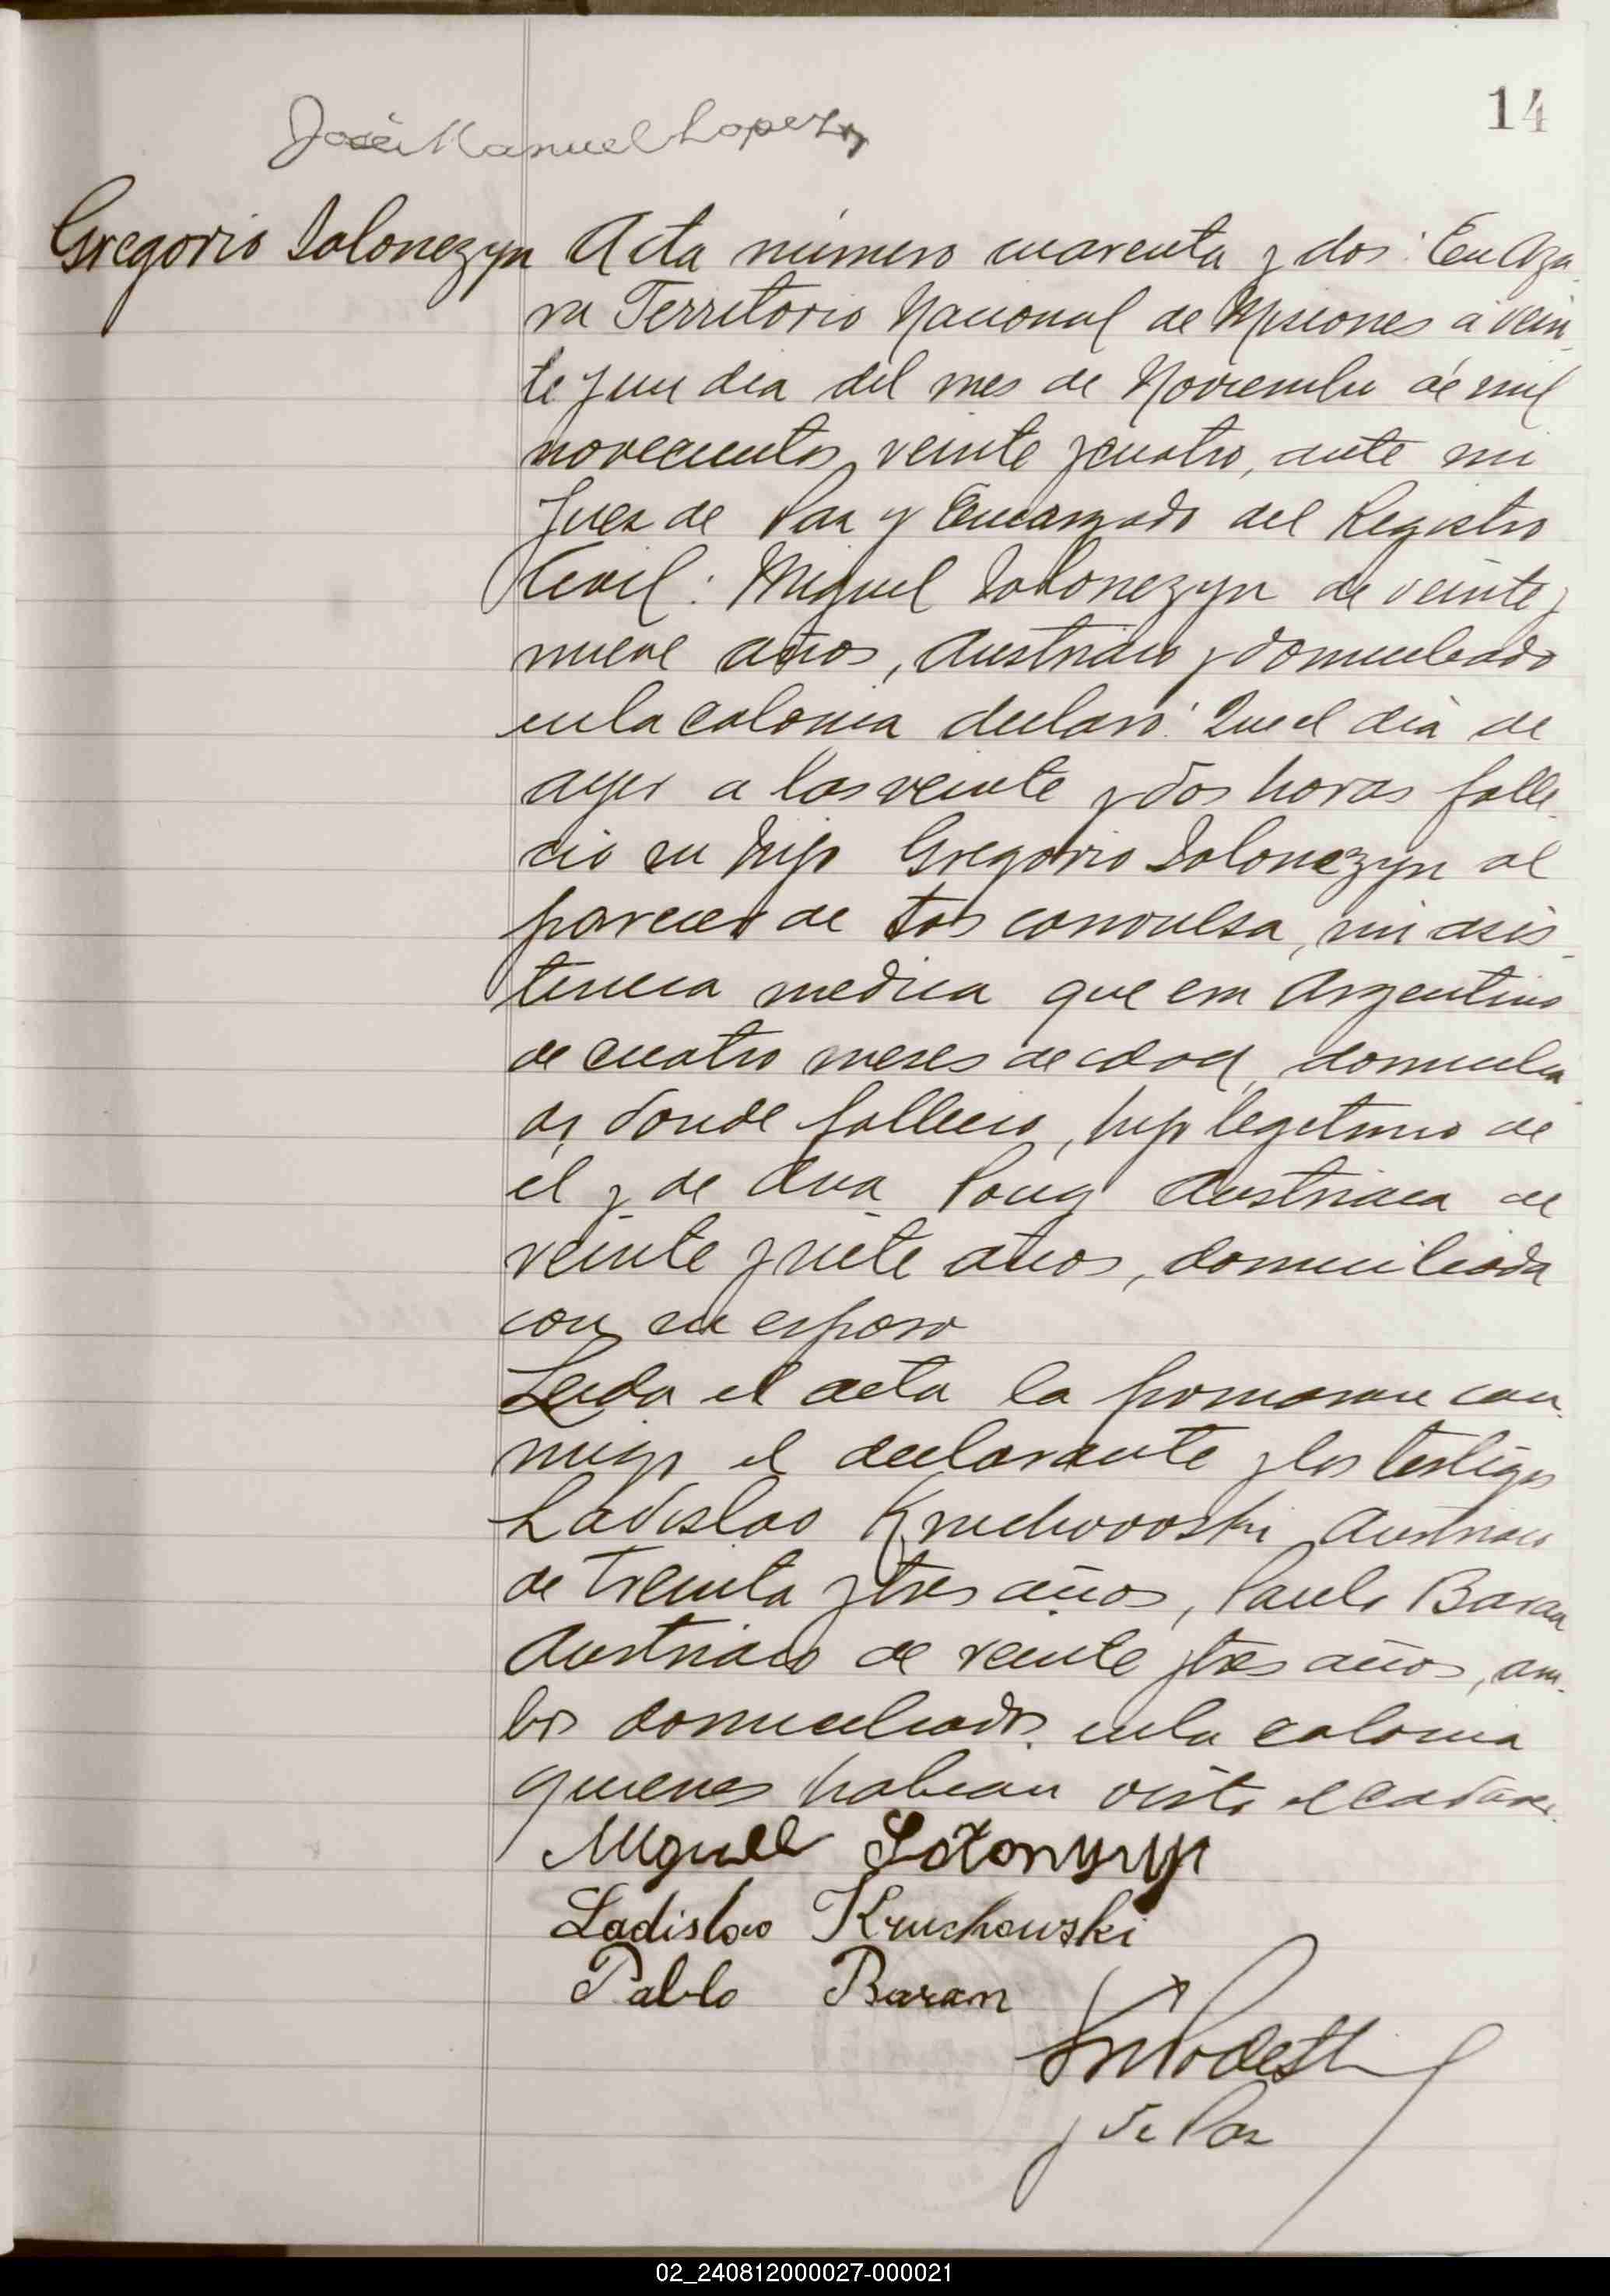 14
José Manuel Lopez
Gregorio Solonezyn Acta número cuarenta y dos: En Aza
ra Territorio Nacional de Misiones a vein
te y un dia del mes de Noviembre de mil
novecientos veinte y cuatro, ante mi
Juez de Paz y Encargado del Registro
Civil: Miguel Solonezyn de veinte y
nueve años, Austriaco y domiciliado
en la colonia declaró: Que el dia de
ayer a las veinte y dos horas falle
cio su hijo Gregorio Solonezyn al
parecer de tos convulsa, sin asis-
tencia medica que era Argentino
de cuatro meses de edad, domicilia
do, donde fallecio, hijo legitimo de
el y de Ana Austriaca de
veinte y siete años, domiciliada
con su esposo
Leida el acta la firmaron con
migo el declarante y los testigos
Ladislao Kruchowoski Austriaco
de treinta y tres años, Paulo Baran
Austriaco de veinte y tres años, am-
bos domiciliados en la colonia
quienes habian visto el cadaver.
Miguel Sotonyyn
Ladislao Kruchowski
Pablo Baran
J de Paz
02_240812000027-000021